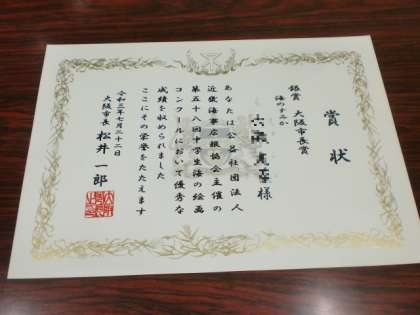 賞状
銀賞 大阪市長賞
海の子ニか
様
あなたは公益社団法人
近畿海事広報協会主催の
第五十八回中学生海の絵画
コンクールにおいて優秀な
成績を収められました
ここにその栄誉をたたえます
令和三年七月二十二日
大阪市長 松井一郎